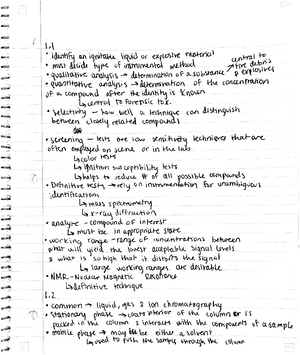 1.1
• identify an ignitable liquid or explosive material
• must decide type of instrumental method
• qualitative analysis → determination of a substance
central to
→ fire debris
& explosives
• quantitative analysis → determination of the concentration
of a compound after the identity is known
↳ central to forensic tox.
• Selectivity - how well a technique can distinguish
between closely related compounds
• screening - tests are low sensitivity techniques that are
often employed on scene or in the lab
↳ color tests
↳ ignition susceptibility tests
↳ helps to reduce # of all possible compounds
• Definitive tests → rely on instrumentation for unambiguous
identification
↳ mass spectrometry
↳ x-ray diffraction
• analyte - compound of interest
↳ must be in appropriate state
• working range - range of concentrations between
what will yield the lowest acceptable signal levels
& what is so high that it distorts the signal
↳ large working ranges are desirable
• NMR - Nuclear Magnetic Resonance
↳ definitive technique
1.2
• common → liquid, gas & ion chromatography
• stationary phase → coats interior of the column or is
packed in the column & interacts with the components of a sample
• mobile phase → may be either a solvent
↳ used to push the sample through the column